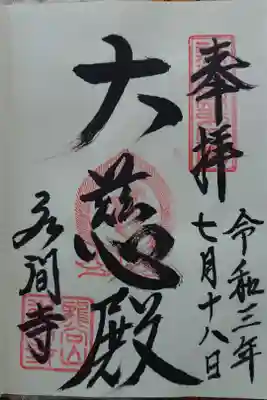 奉拝
令和三年
七月十八日
大慈殿
岩間寺